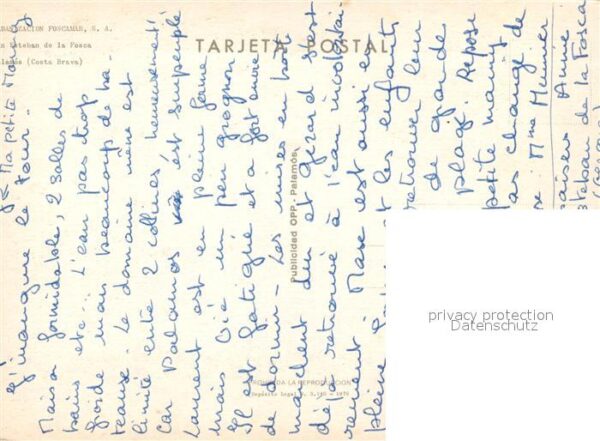 URBANIZACION FOSCAMAR, S. A.
San Esteban de la Fosca
Palamós (Costa Brava)
TARJETA POSTAL
Publicidad OPP. Palamós
PROHIBIDA LA REPRODUCCION
Depósito Legal 1970
Ma petite Mamy
J'inaugure le tour.
Maison formidable, 2 salles de
bains etc... L'eau pas trop
froide mais beaucoup de ba-
teaux. Le domaine même est
limité entre 2 collines heureusement
car Palamos est surpeuplé
Laurent est en pleine forme
mais Cié un peu grognon
Il est fatigué et a fort envie
de dormir - Les mises en boîte
marchent dur et Gérard s'est
déjà retrouvé à l'eau involontai
rement. Max est aussi en
pleine et les enfants
retrouver leur
de grande
plage. Repose
petite mamy
pas change de
Mme Meunier
baisers Annie
Esteban de la Fosca
privacy protection
Datenschutz